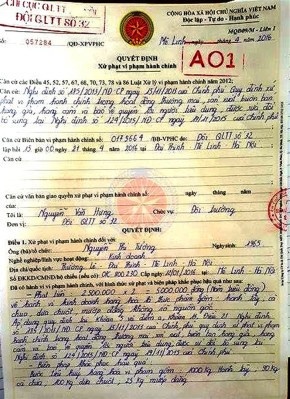 CHI CỤC QLTT
ĐỘI QLTT SỐ 32
CỘNG HÒA XÃ HỘI CHỦ NGHĨA VIỆT NAM
Độc lập - Tự do - Hạnh phúc
MQĐ09/04 - Liên 1
Số: 057284 /QĐ-XPVPHC
Mê Linh, ngày tháng 4 năm 2016
QUYẾT ĐỊNH
Xử phạt vi phạm hành chính
A01
Căn cứ các Điều 45, 52, 57, 67, 68, 70, 73, 78 và 86 Luật Xử lý vi phạm hành chính năm 2012;
Căn cứ Nghị định số 185/2013/NĐ-CP ngày 15/11/2013 của Chính phủ Quy định xử
phạt vi phạm hành chính trong hoạt động thương mại, sản xuất buôn bán
hàng giả, hàng cấm và bảo vệ quyền lợi người tiêu dùng được sửa đổi
bổ sung tại Nghị định số 124/2015/NĐ-CP ngày 19/11/2015 của Chính phủ
Căn cứ Biên bản vi phạm hành chính số: /BB-VPHC do Đội QLTT số 32
lập hồi 15 giờ 00 ngày 21 tháng 4 năm 2016 tại Đại Thịnh Mê Linh Hà Nội
Căn cứ
Căn cứ văn bản giao quyền xử phạt vi phạm hành chính số: ngày tháng năm
Tôi là: Nguyễn Văn Hưng Chức vụ: Đội trưởng
Đơn vị: Đội QLTT số 32
QUYẾT ĐỊNH:
Điều 1. Xử phạt vi phạm hành chính đối với:
Ông (bà)/tổ chức: Nguyễn Thị Tường 1965
Nghề nghiệp/lĩnh vực hoạt động: Kinh doanh
Địa chỉ: Thường Lệ - Đại Thịnh - Mê Linh - Hà Nội
Số ĐKKD/CMND/hộ chiếu: Mê Linh - Hà Nội
Đã có hành vi vi phạm hành chính, với hình thức xử phạt và biện pháp khắc phục hậu quả như sau:
- Phạt tiền: 2.500.000 x 2 = 5.000.000 đồng (Năm triệu đồng)
về hành vi kinh doanh hàng hóa là thực phẩm gồm: hành tây, cà
chua, dưa chuột không rõ nguồn gốc
Áp dụng khoản Điều 21 Nghị định
số 185/2013/NĐ-CP ngày 15/11/2013 của Chính phủ quy định xử phạt vi phạm
hành chính trong hoạt động thương mại, sản xuất buôn bán hàng giả, hàng
cấm và bảo vệ quyền lợi người tiêu dùng được sửa đổi bổ sung tại
Nghị định số 124/2015/NĐ-CP ngày 19/11/2015 của Chính phủ
- Biện pháp khắc phục hậu quả:
Buộc tiêu hủy hàng hóa vi phạm gồm: 1000 Kg Hành tây, 90 Kg
cà chua, 100 Kg dưa chuột, 25 Kg